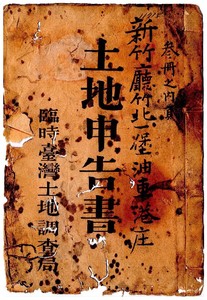 叁冊之內頁
新竹廳竹北一堡油車港庄
土地申告書
臨時臺灣土地調查局